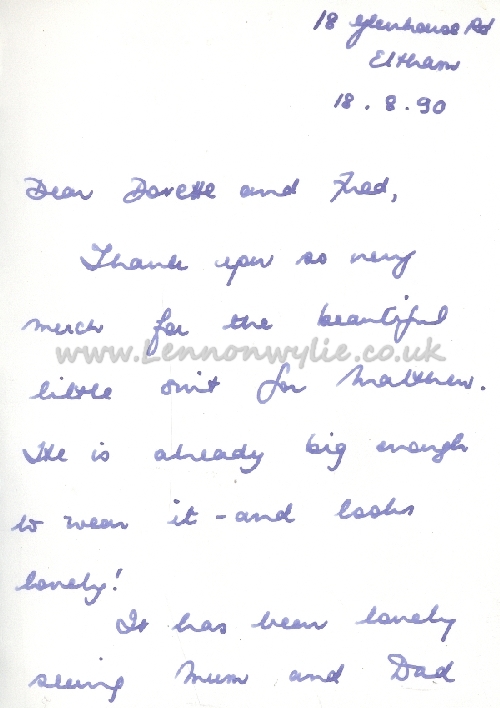 18 Glenhouse Rd
Eltham
18.8.90
Dear Dorette and Fred,
Thank you so very
much for the beautiful
www.Lennonwylie.co.uk
little suit for Matthew.
He is already big enough
to wear it - and looks
lovely!
It has been lovely
seeing Mum and Dad